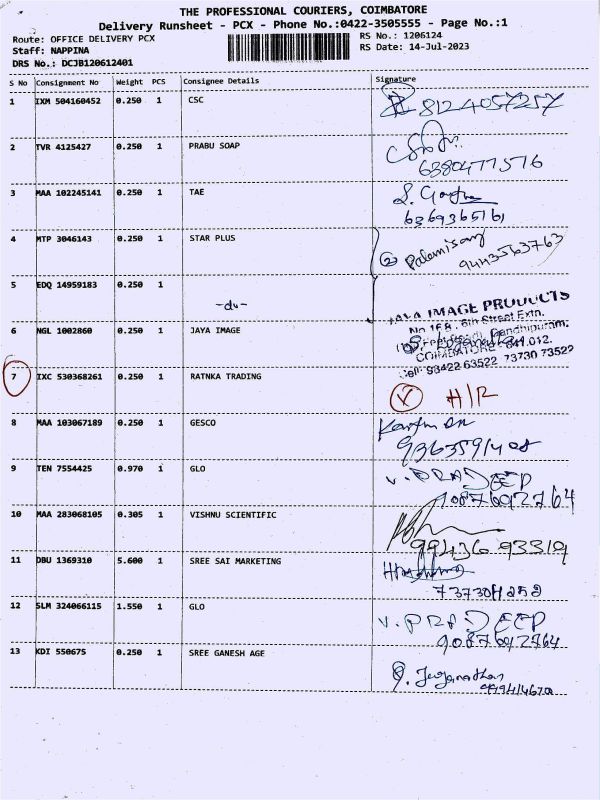 THE PROFESSIONAL COURIERS, COIMBATORE
Delivery Runsheet - PCX - Phone No.:0422-3505555 - Page No.:1
Route: OFFICE DELIVERY PCX
RS No.: 1206124
Staff: NAPPINA
RS Date: 14-Jul-2023
DRS No.: DCJB120612401
S No Consignment No Weight PCS Consignee Details Signature
1 IXM 504160452 0.250 1 CSC 8124057257
2 TVR 4125427 0.250 1 PRABU SOAP
6380477576
3 MAA 102245141 0.250 1 TAE
6369365161
4 MTP 3046143 0.250 1 STAR PLUS Palanisamy
9443563763
5 EDQ 14959183 0.250 1 -do-
JAYA IMAGE PRODUCTS
No.16 B, 6th Street Extn.
6 NGL 1002860 0.250 1 JAYA IMAGE
Gandhipuram,
COIMBATORE - 641 012.
Cell: 98422 63522 73730 73522
7 IXC 530368261 0.250 1 RATNKA TRADING
H/R
8 MAA 103067189 0.250 1 GESCO
9 TEN 7554425 0.970 1 GLO V. PRADEEP
9087692764
10 MAA 283068105 0.305 1 VISHNU SCIENTIFIC
99436 93319
11 DBU 1369310 5.600 1 SREE SAI MARKETING
12 SLM 324066115 1.550 1 GLO V. PRADEEP
9087692764
13 KDI 550675 0.250 1 SREE GANESH AGE